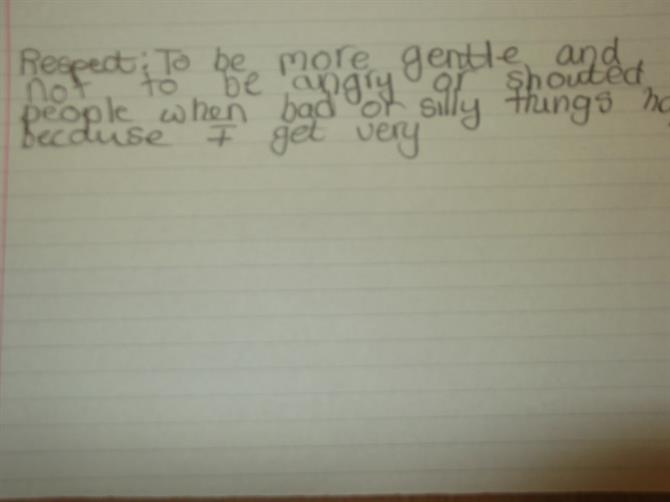 Respect: To be more gentle and
not to be angry or shouted
people when bad or silly things
because I get very